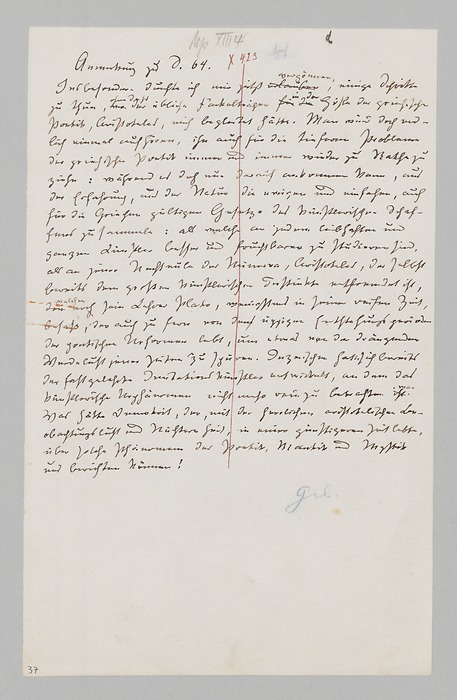 Mp XIII 4
X 423
Anmerkung zu S. 64.
vergönnen,
Insbesondere durfte ich mir jetzt erlauben, einige Schritte
zu thun, die der übliche Fackelträger für die Höhle der griechischen
Poetik, Aristoteles, mich begleitet hätte. Man wird doch end-
lich einmal aufhören, ihn auch für die tieferen Probleme
der griechischen Poetik immer und immer wieder zu Rathe zu
ziehn: während es doch nur darauf ankommen kann, aus
der Erfahrung, aus der Natur die ewigen und einfachen, auch
für die Griechen gültigen Gesetze des künstlerischen Schaf-
fens zu sammeln: als welche an jedem leibhaften und
ganzen Künstler besser und fruchtbarer zu studieren sind,
als an jener Nachteule der Minerva, Aristoteles, der selbst
bereits dem großen künstlerischen Instinkte entfremdet ist,
welchen
den noch sein Lehrer Plato, wenigstens in seiner reifen Zeit,
besaß, der auch zu fern von den üppigen Entstehungsperioden
der poetischen Urformen lebt, um etwas von der drängenden
Werdelust jener Zeiten zu spüren. Inzwischen hatte sich bereits
der fast gelehrte Imitationskünstler entwickelt, an dem das
künstlerische Urphänomen nicht mehr rein zu betrachten ist.
Was hätte Demokrit, der, mit der herrlichen, aristotelischen Be-
obachtungslust und Nüchternheit, in einer günstigeren Zeit lebte,
über solche Phänomene der Poetik, Mantik und Mystik
uns berichten können!
37